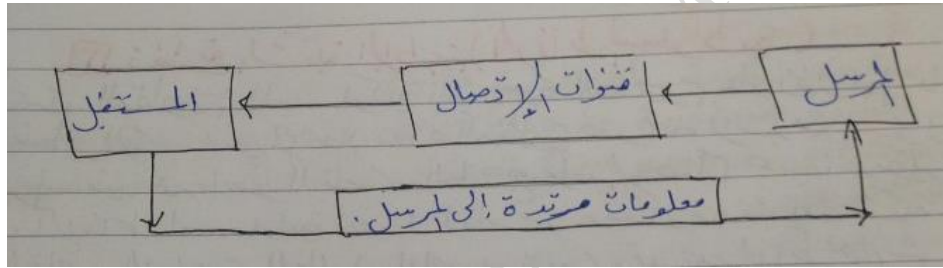 المرسل
قنوات الإتصال
المستقبل
معلومات مرتدة إلى المرسل.